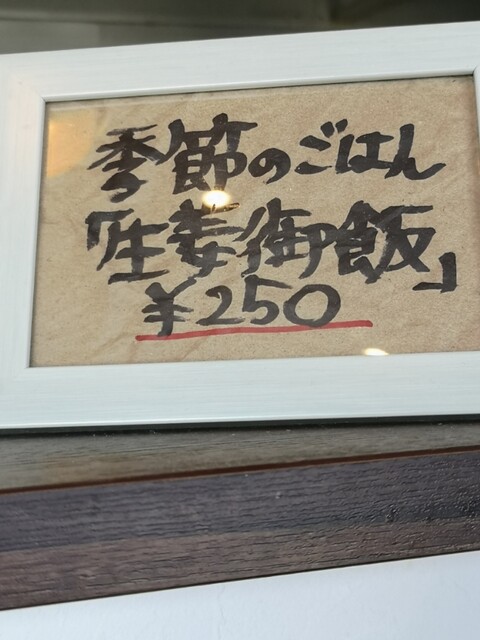 季節のごはん
「生姜御飯」
¥250